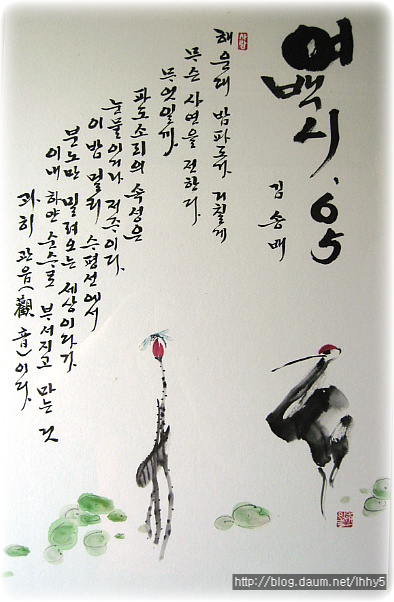 여백시, 65
김송배
사랑
해운대 밤파도가 거칠게
무슨 사연을 전한다.
무엇일까.
파도소리의 속성은
눈물이거나 저주이다.
이 밤 멀리 수평선에서
분노만 밀려오는 세상이다가
이내 하얀 순수로 부서지고 마는 것
과히 관음(觀音)이다.
http://blog.daum.net/lhhy5